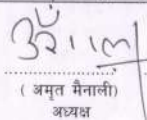 ( अमृत मैनाली)
अध्यक्ष